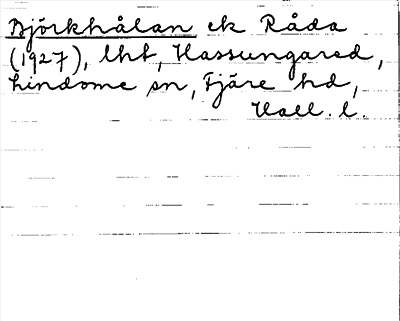 Björkhålan ek Råda
(1927), lht, Hassungared,
Lindome sn, Fjäre hd,
Hall. l.